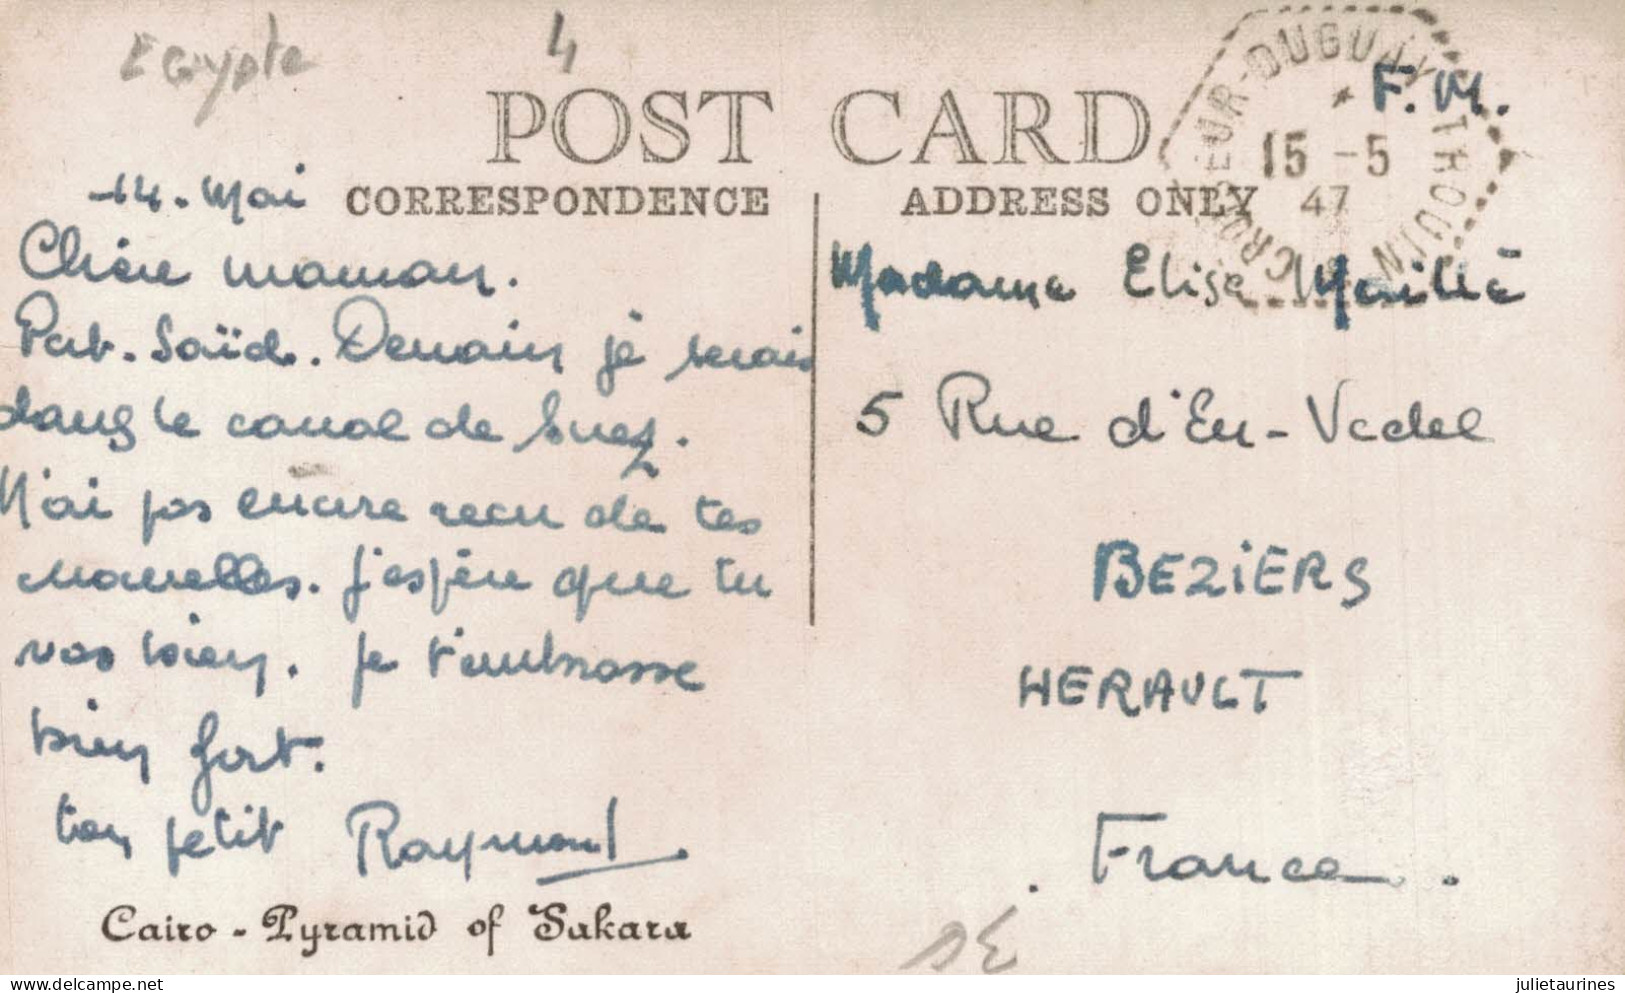 Egypte
4
POST CARD
CORRESPONDENCE
ADDRESS ONLY
CROISEUR-DUGUAY TROUIN
15 - 5
47
F. M.
14. Mai
Chère maman.
Port. Saïd. Demain je serais
dans le canal de Suez.
N'ai pas encore recu de tes
nouvelles. J'espère que tu
vas bien. Je t'embrasse
bien fort.
ton petit Raymond.
Cairo - Pyramid of Sakara
Madame Elise
5 Rue d'En-Vedel
BEZiERS
HERAULT
France.
delcampe.net
juliетaurines